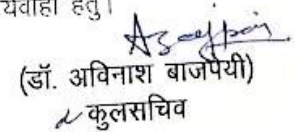 यवाही हेतु।
(डॉ. अविनाश बाजपेयी)
कुलसचिव